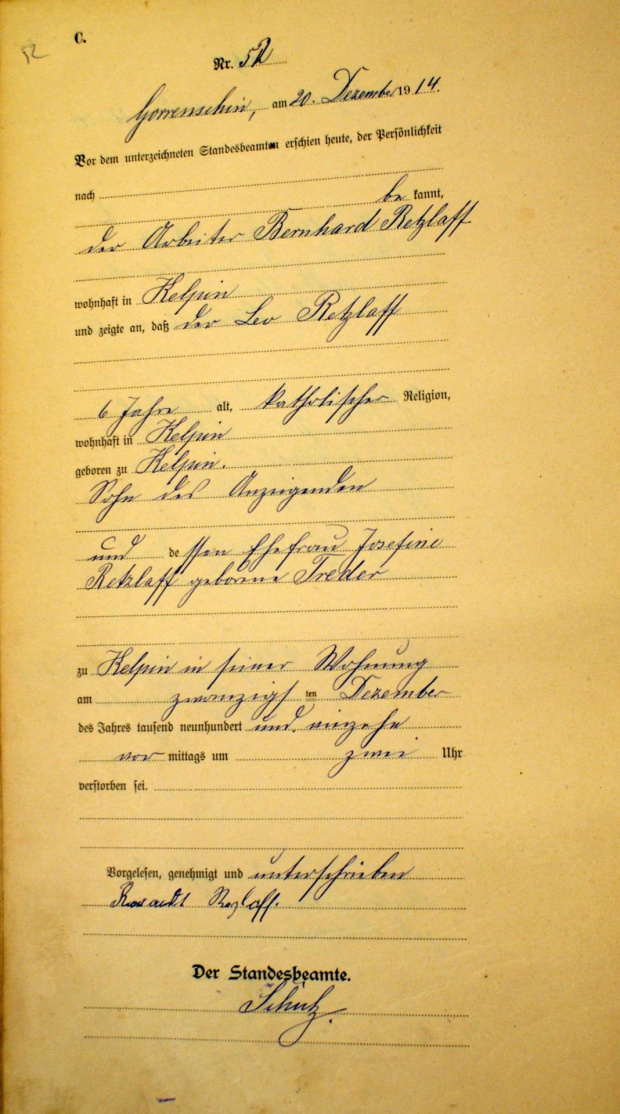 52
C.
Nr. 52
Gorrenschin, am 20. Dezember 1914.
Vor dem unterzeichneten Standesbeamten erschien heute, der Persönlichkeit
nach
be kannt,
der Arbeiter Bernhard Retzlaff
wohnhaft in Kelpin
und zeigte an, daß der Leo Retzlaff
6 Jahre alt, katholischer Religion,
wohnhaft in Kelpin
geboren zu Kelpin.
Sohn des Anzeigenden
und dessen Ehefrau Josefine
Retzlaff geborne Treder
zu Kelpin in seiner Wohnung
am zwanzigsten Dezember
des Jahres tausend neunhundert und
vor mittags um zwei Uhr
verstorben sei.
Vorgelesen, genehmigt und unterschrieben
Der Standesbeamte.